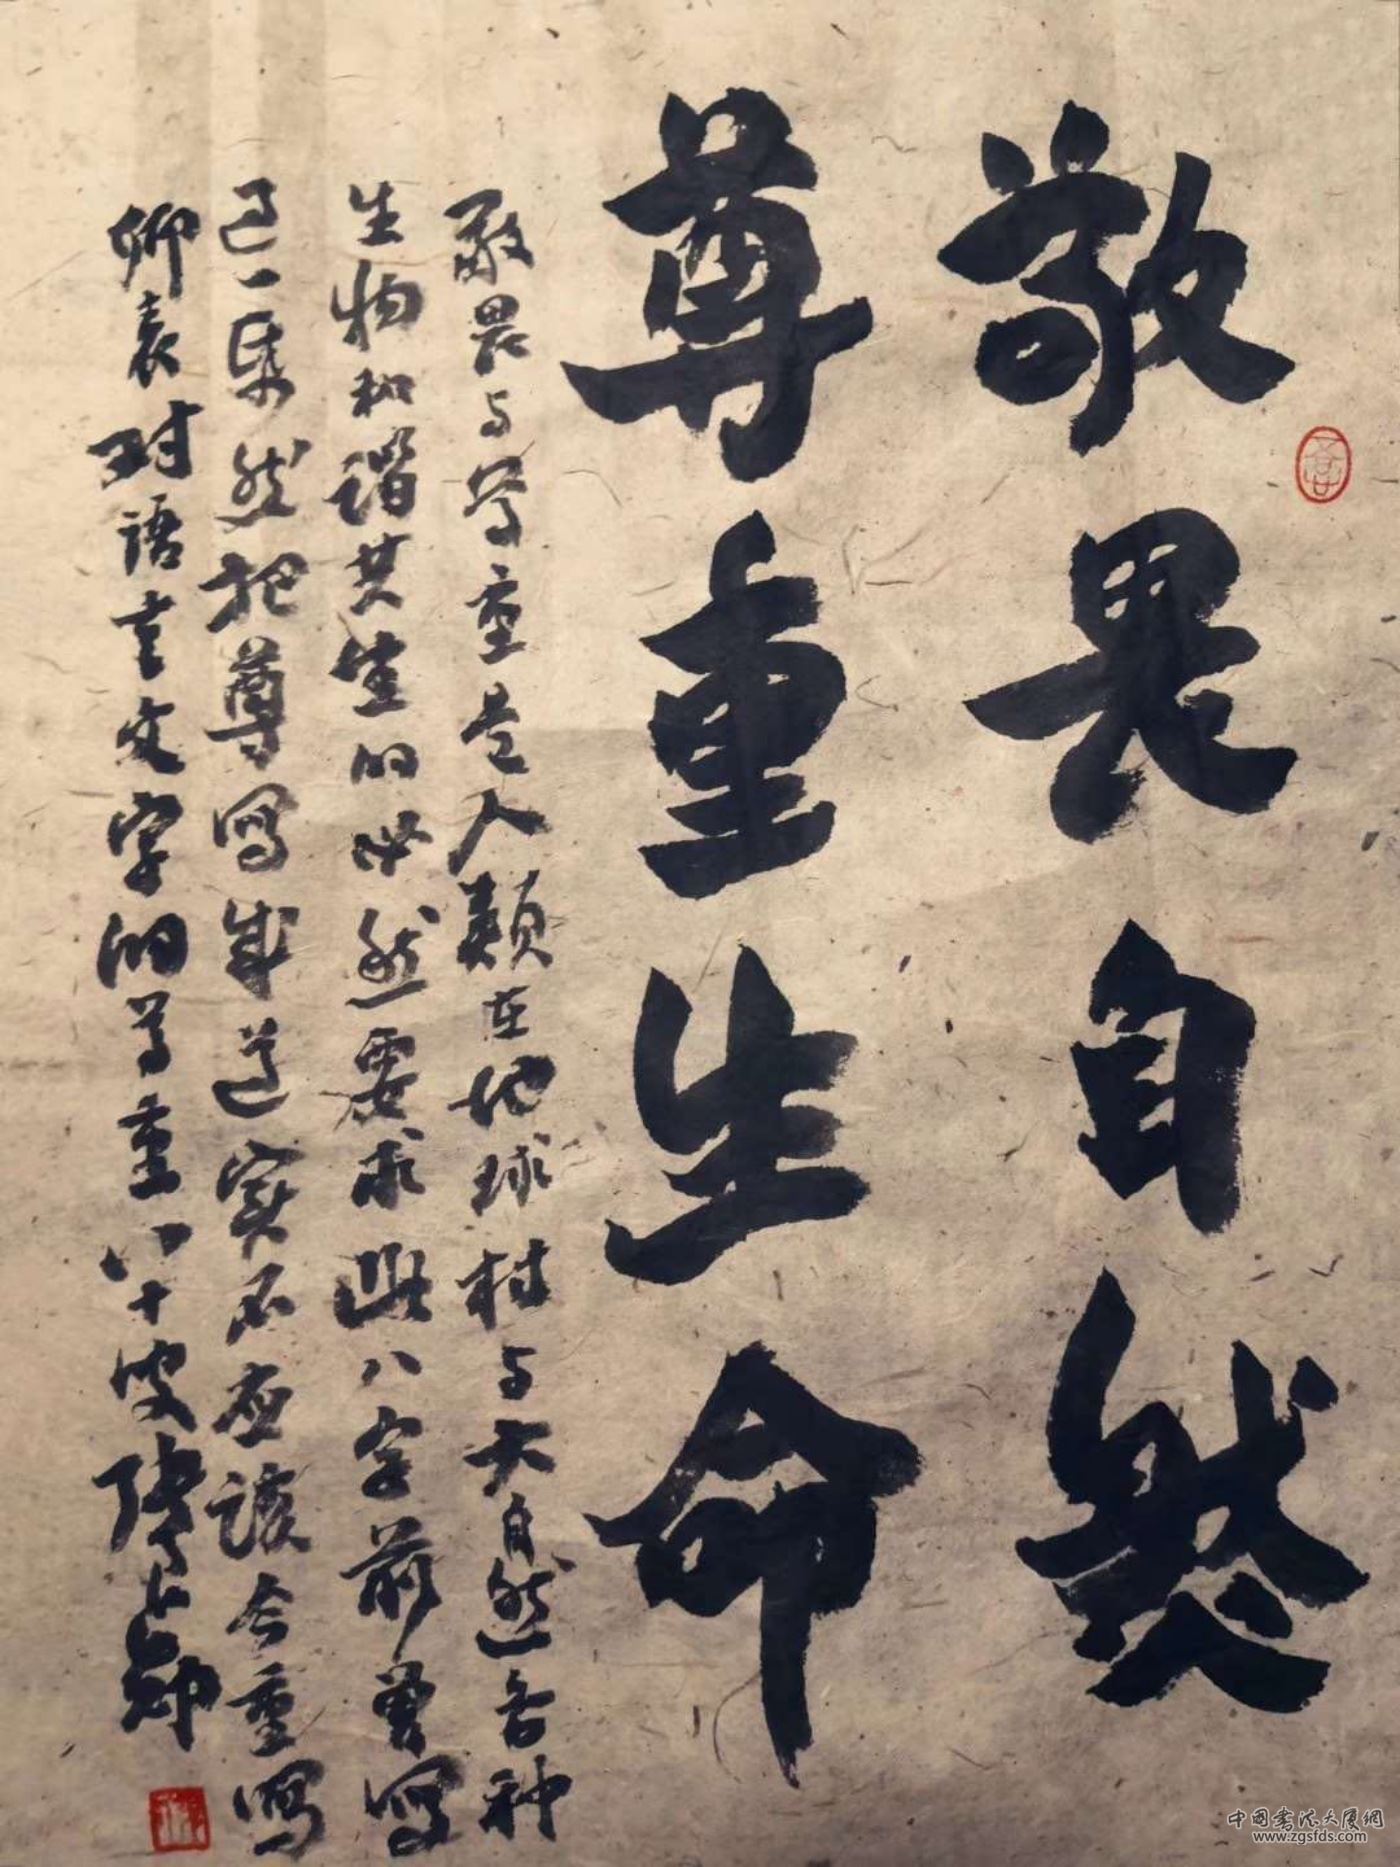 敬畏自然
尊重生命
敬畏与尊重是人類在地球村与大自然各种
生物和谐共生的必然要求此八字前曾写
过一集然把尊写成道实不应该今重写
聊表对语言文字的尊重八十叟陈
中国书法大厦網
www.zgsfds.com